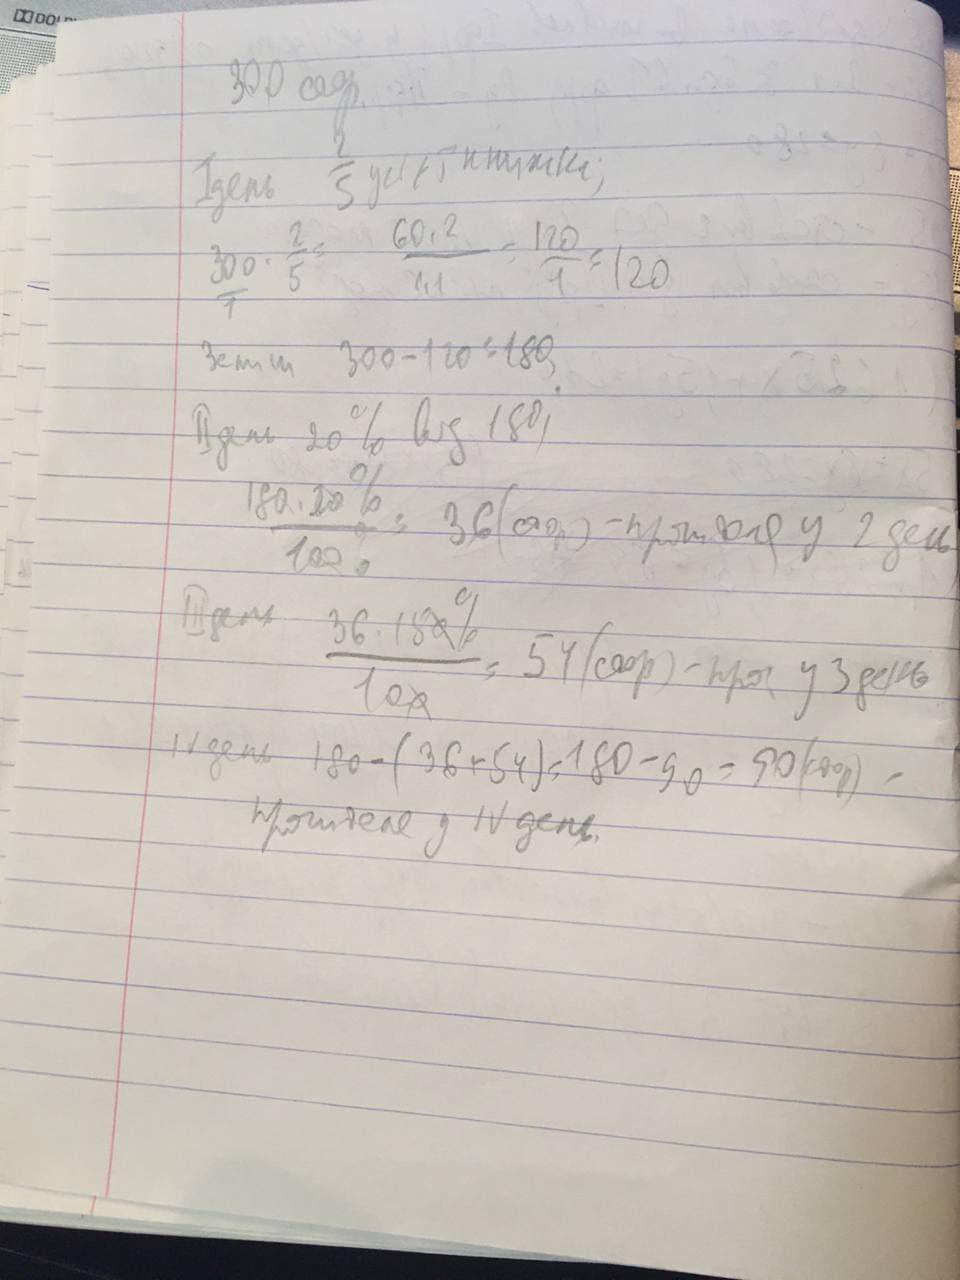 DOL
300 стор.
I день 2/5 усієї книжки;
300/1 · 2/5 = 60·2/1·1 = 120/1 = 120
300-120=180.
II день 20% від 180,
180·20%/100% = 36(стор)-прочит у 2 день
III день 36·150%/100% = 54(стор)-проч у 3 день
IV день 180-(36+54)=180-90=90(стор) -
у IV день.